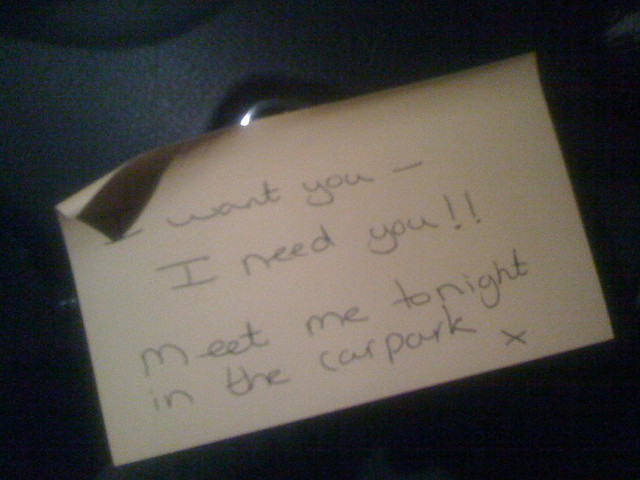 I want you –
I need you!!
Meet me tonight
in the carpark x